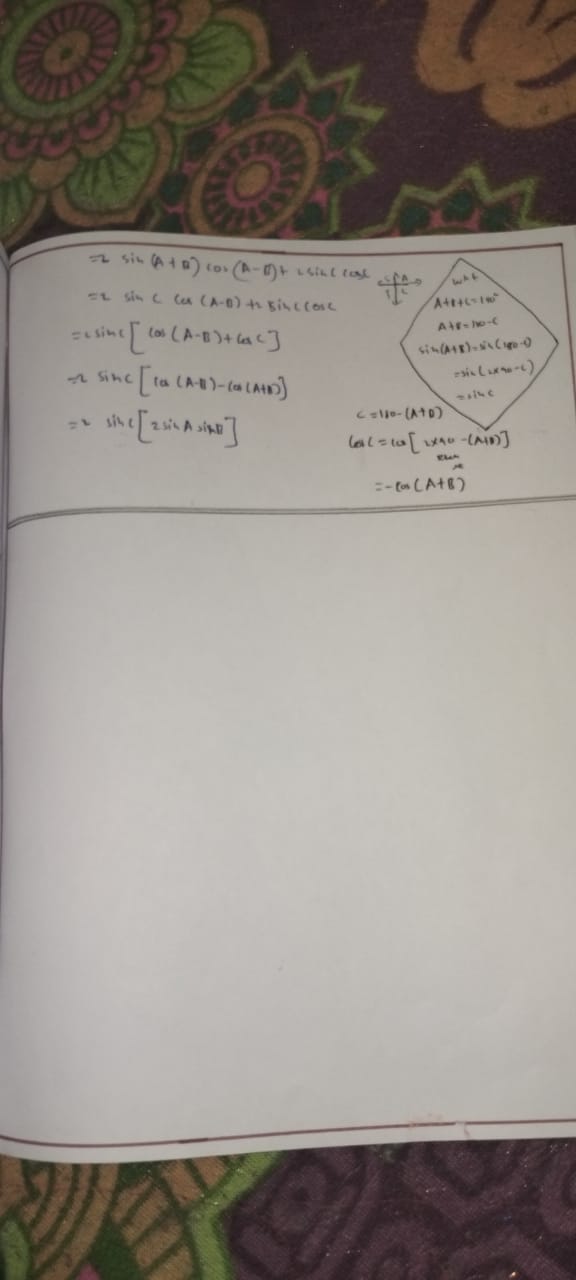 =2 sin (A+B) cos (A-B)+ 2 sin C cos C
=2 sin C cos (A-B) +2 sin C cos C
=2 sin C [ cos (A-B)+cos C ]
=2 sin C [ cos (A-B)-cos (A+B)]
=2 sin C [ 2 sin A sin B ]
S A
T C
A+B+C=180°
A+B=180-C
sin(A+B)=sin(180-C)
=sin(2x90-C)
=sin C
C=180-(A+B)
cos C = cos [ 2x90 -(A+B)]
=-cos (A+B)